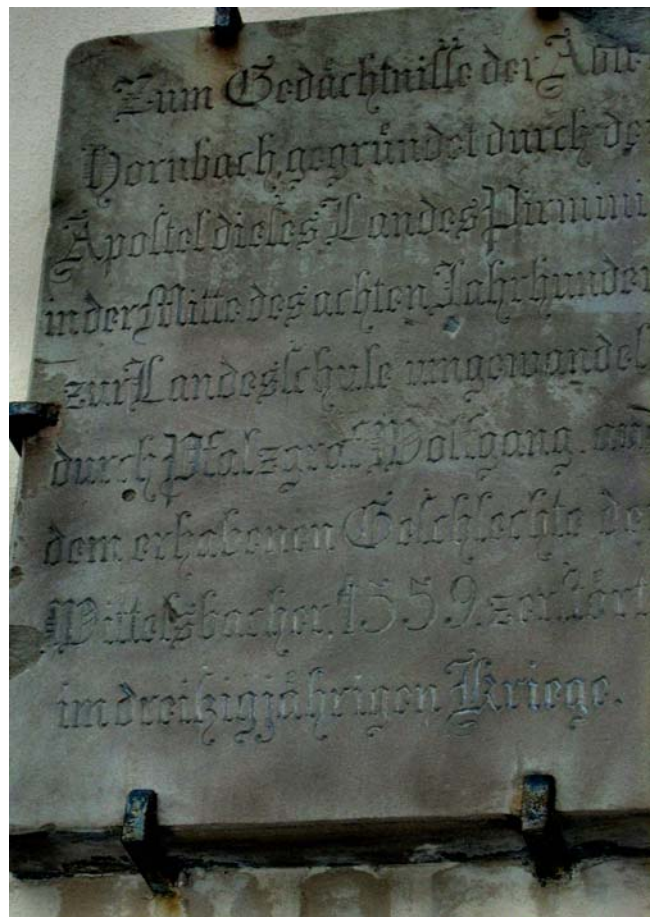 Zum Gedächtnisse der Abte
Hornbach, gegründet durch de
Apostel dieses Landes Pirmini
in der Mitte des achten Jahrhunder
zur Landesschule umgewandel
durch Pfalzgraf Wolfgang. au
dem erhabenen Geschlechte de
Wittelsbacher, 1559. zerstört
im dreißigjährigen Kriege.